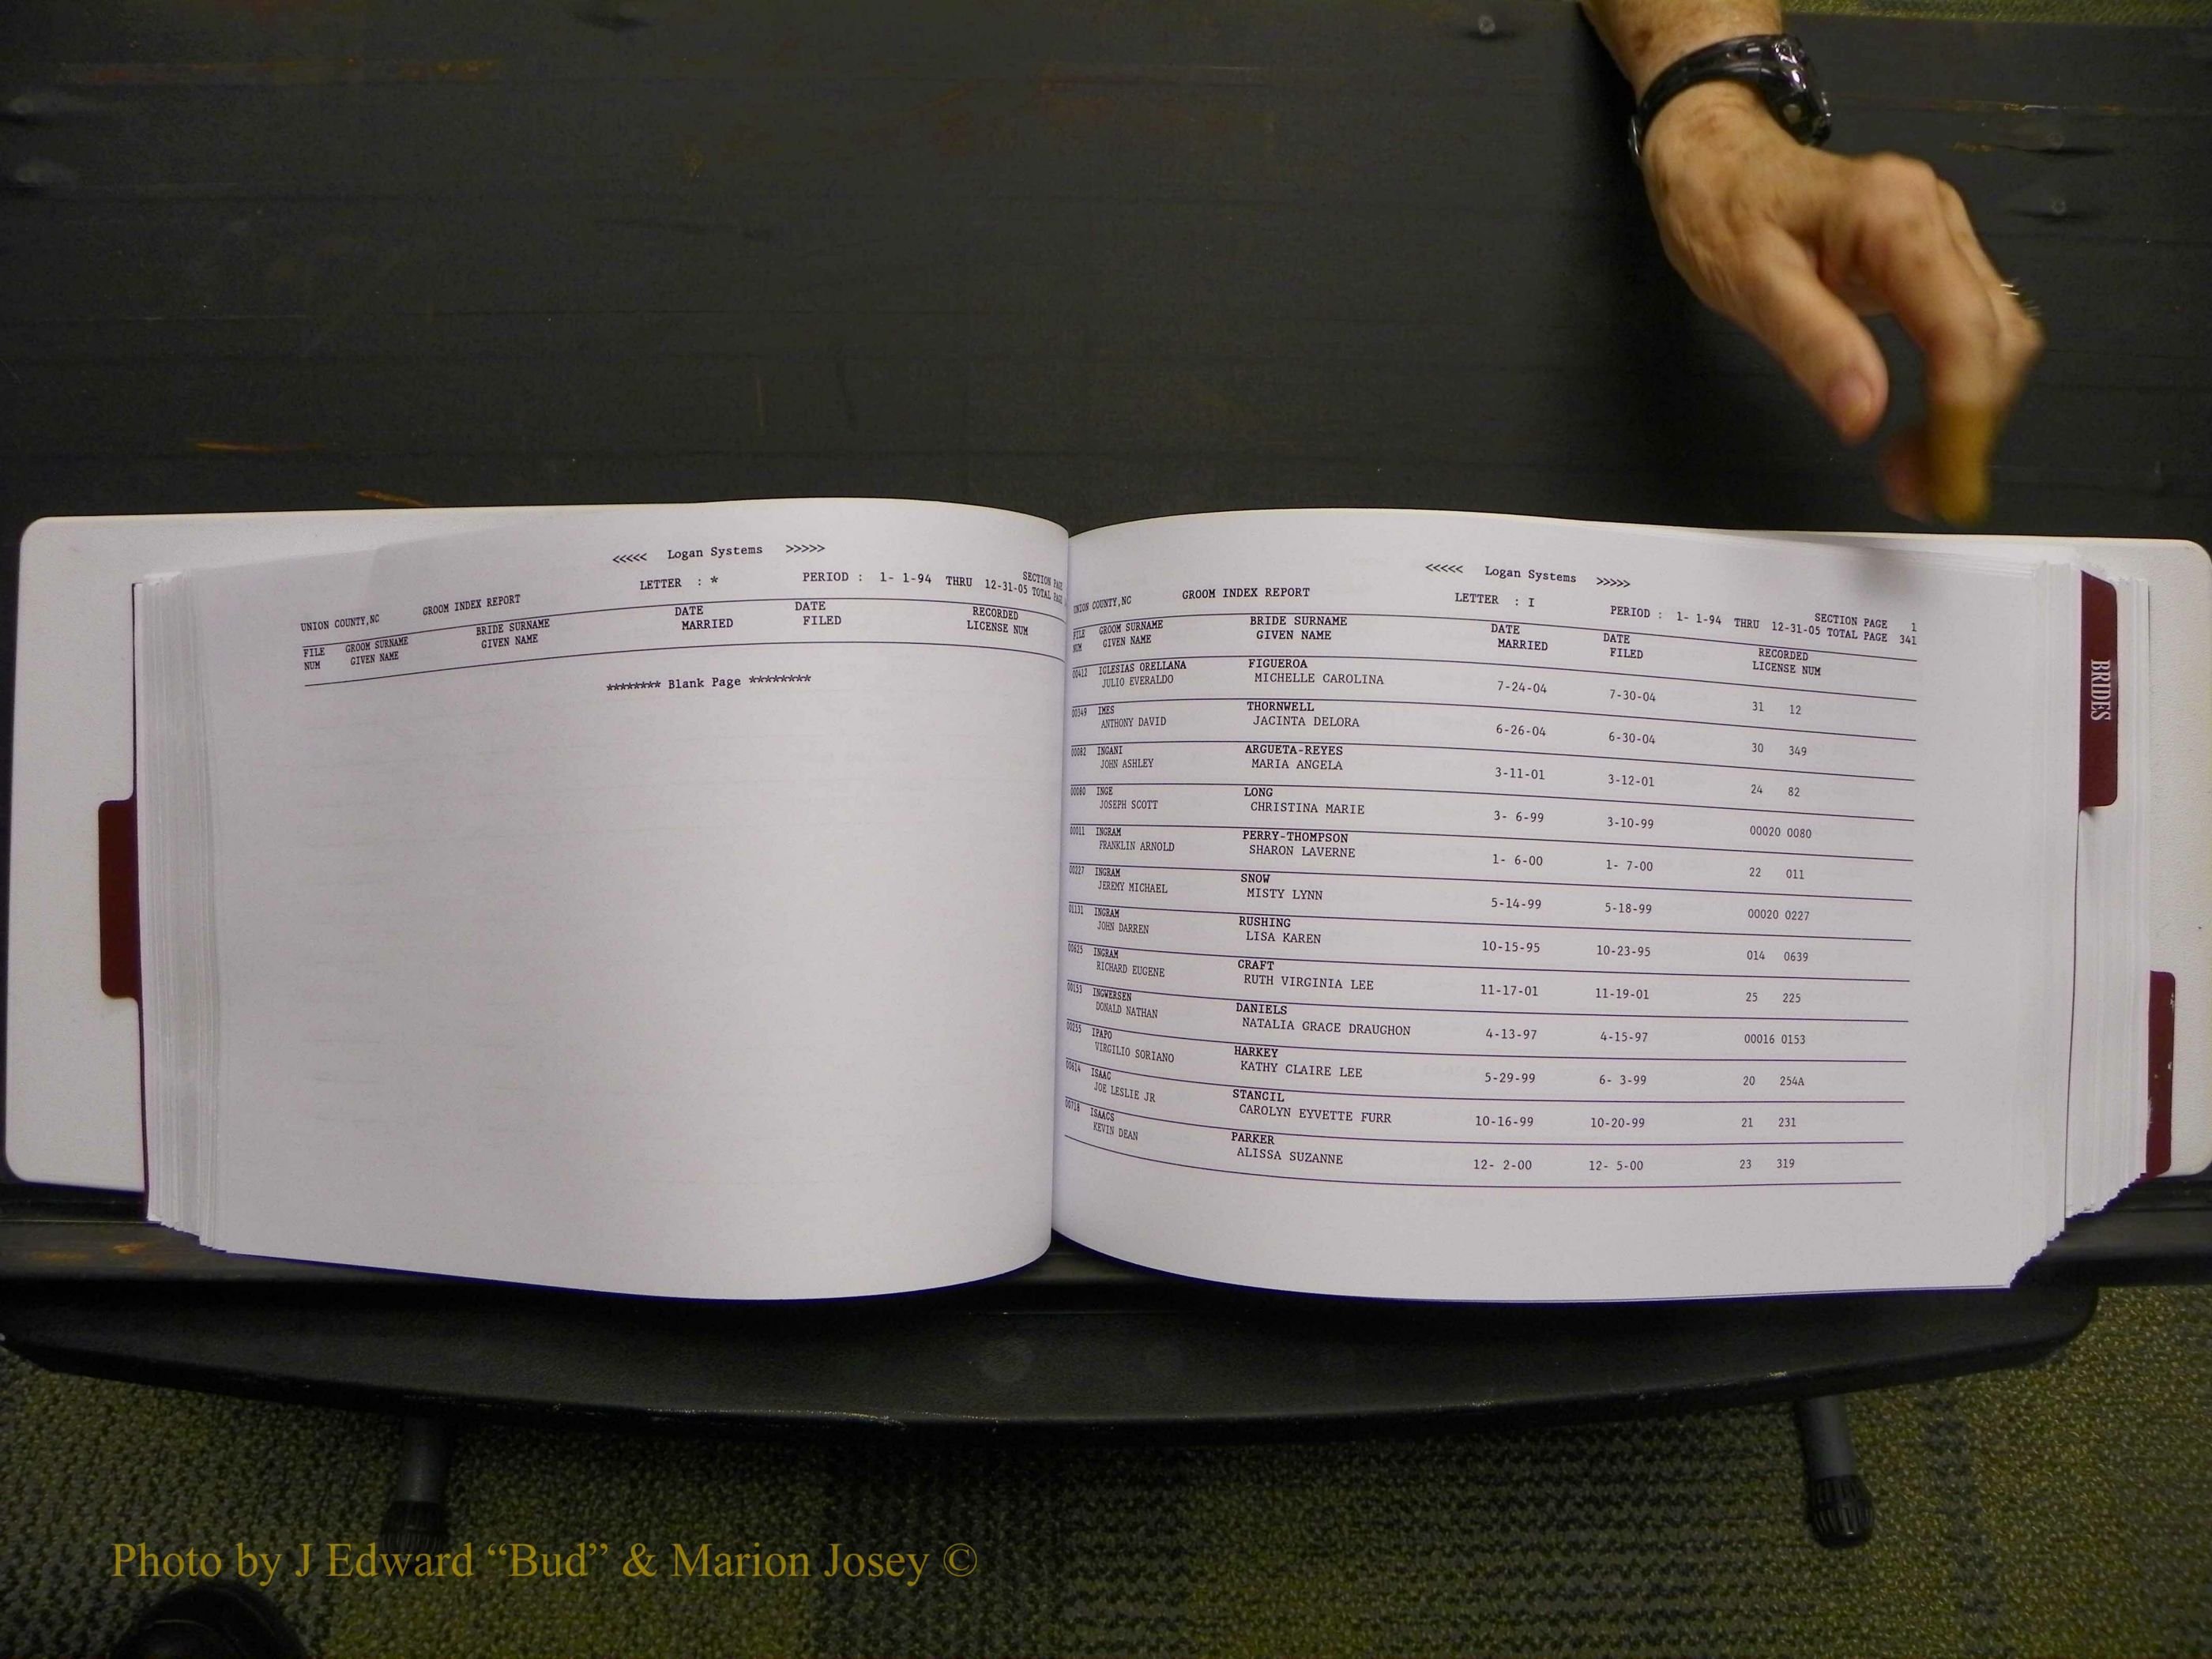 <<<<< Logan Systems >>>>>
LETTER : * PERIOD : 1- 1-94 THRU 12-31-05 SECTION PAGE
TOTAL PAGE
UNION COUNTY,NC GROOM INDEX REPORT
FILE GROOM SURNAME BRIDE SURNAME DATE DATE RECORDED
NUM GIVEN NAME GIVEN NAME MARRIED FILED LICENSE NUM
******** Blank Page ********
<<<<< Logan Systems >>>>>
UNION COUNTY,NC GROOM INDEX REPORT LETTER : I PERIOD : 1- 1-94 THRU 12-31-05 SECTION PAGE 1
TOTAL PAGE 341
FILE GROOM SURNAME BRIDE SURNAME DATE DATE RECORDED
NUM GIVEN NAME GIVEN NAME MARRIED FILED LICENSE NUM
00412 IGLESIAS ORELLANA FIGUEROA
JULIO EVERALDO MICHELLE CAROLINA 7-24-04 7-30-04 31 12
00349 IMES THORNWELL
ANTHONY DAVID JACINTA DELORA 6-26-04 6-30-04 30 349
00082 INGANI ARGUETA-REYES
JOHN ASHLEY MARIA ANGELA 3-11-01 3-12-01 24 82
00080 INGE LONG
JOSEPH SCOTT CHRISTINA MARIE 3- 6-99 3-10-99 00020 0080
00011 INGRAM PERRY-THOMPSON
FRANKLIN ARNOLD SHARON LAVERNE 1- 6-00 1- 7-00 22 011
00227 INGRAM SNOW
JEREMY MICHAEL MISTY LYNN 5-14-99 5-18-99 00020 0227
01131 INGRAM RUSHING
JOHN DARREN LISA KAREN 10-15-95 10-23-95 014 0639
00625 INGRAM CRAFT
RICHARD EUGENE RUTH VIRGINIA LEE 11-17-01 11-19-01 25 225
00153 INGWERSEN DANIELS
DONALD NATHAN NATALIA GRACE DRAUGHON 4-13-97 4-15-97 00016 0153
00255 IPAPO HARKEY
VIRGILIO SORIANO KATHY CLAIRE LEE 5-29-99 6- 3-99 20 254A
00614 ISAAC STANCIL
JOE LESLIE JR CAROLYN EYVETTE FURR 10-16-99 10-20-99 21 231
00718 ISAACS PARKER
KEVIN DEAN ALISSA SUZANNE 12- 2-00 12- 5-00 23 319
BRIDES
Photo by J Edward “Bud” & Marion Josey ©